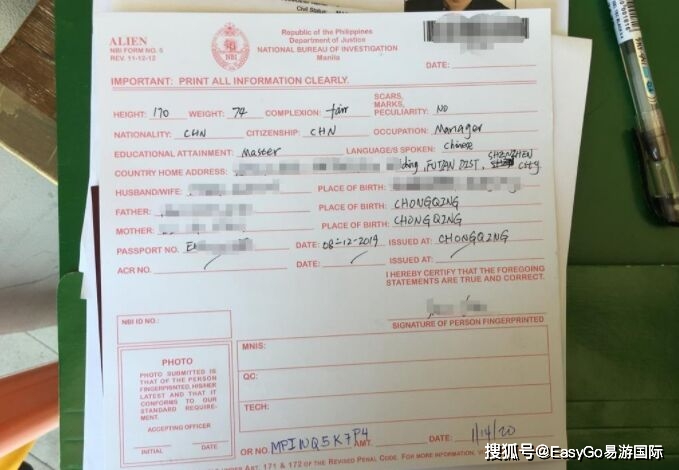 Civil Status:
ALIEN
NBI FORM NO. 5
REV. 11-12-12
NBI
Republic of the Philippines
Department of Justice
NATIONAL BUREAU OF INVESTIGATION
Manila
DATE:
IMPORTANT: PRINT ALL INFORMATION CLEARLY.
HEIGHT: 170 WEIGHT: 74 COMPLEXION: fair SCARS, MARKS, PECULIARITY: NO
NATIONALITY: CHN CITIZENSHIP: CHN OCCUPATION: Manager
EDUCATIONAL ATTAINMENT: Master LANGUAGE/S SPOKEN: Chinese
COUNTRY HOME ADDRESS: ding, FUTIAN DIST, SHENZHEN City
HUSBAND/WIFE: PLACE OF BIRTH:
FATHER: PLACE OF BIRTH: CHONGQING
MOTHER: PLACE OF BIRTH: CHONGQING
PASSPORT NO. E DATE: 08-12-2019 ISSUED AT: CHONGQING
ACR NO. DATE: ISSUED AT:
I HEREBY CERTIFY THAT THE FOREGOING
STATEMENTS ARE TRUE AND CORRECT.
SIGNATURE OF PERSON FINGERPRINTED
NBI ID NO.:
PHOTO
PHOTO SUBMITTED IS
THAT OF THE PERSON
FINGERPRINTED, HIS/HER
LATEST AND THAT IT
CONFORMS TO OUR
STANDARD REQUIRE-
MENT.
ACCEPTING OFFICER
INITIAL DATE
MNIS:
QC:
TECH:
OR NO. MPINQ5K7P4 AMT. DATE: 1/14/20
ART. 171 & 172 OF THE REVISED PENAL CODE. FOR MORE INFORMATION
搜狐号@EasyGo易游国际